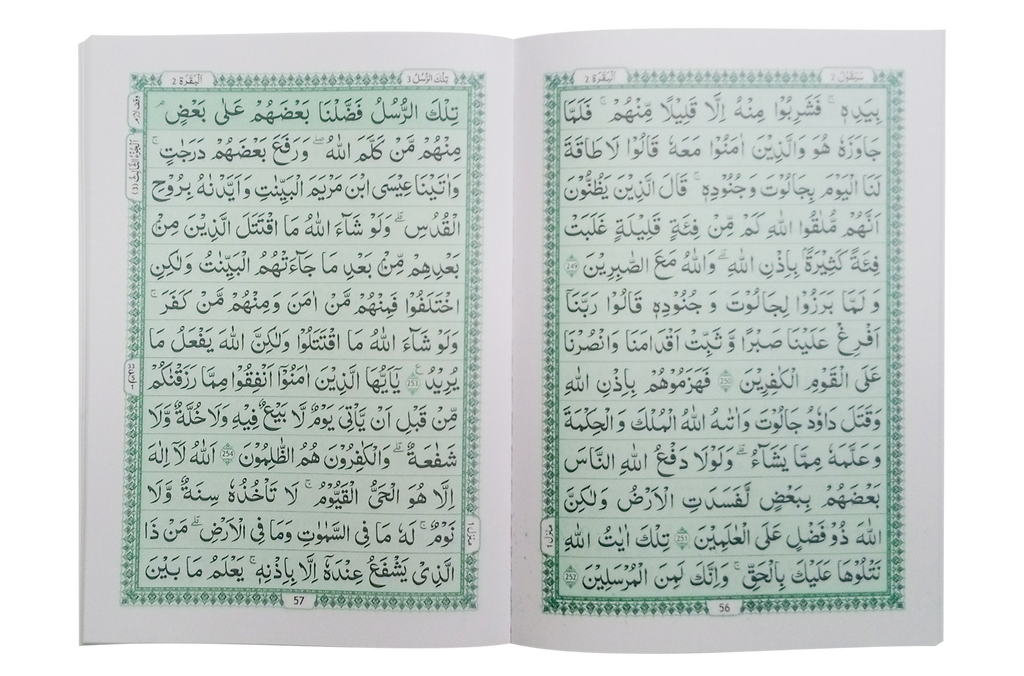 سَيَقُوْلُ 2
اَلْبَقَرَة 2
بِيَدِهٖ ۚ فَشَرِبُوْا مِنْهُ اِلَّا قَلِيْلًا مِّنْهُمْ ۚ فَلَمَّا
جَاوَزَهٗ هُوَ وَالَّذِيْنَ اٰمَنُوْا مَعَهٗ قَالُوْا لَا طَاقَةَ
لَنَا الْيَوْمَ بِجَالُوْتَ وَجُنُوْدِهٖ ۚ قَالَ الَّذِيْنَ يَظُنُّوْنَ
اَنَّهُمْ مُّلٰقُوا اللّٰهِ كَمْ مِّنْ فِئَةٍ قَلِيْلَةٍ غَلَبَتْ
فِئَةً كَثِيْرَةًۢ بِاِذْنِ اللّٰهِ ؕ وَاللّٰهُ مَعَ الصّٰبِرِيْنَ 249
وَلَمَّا بَرَزُوْا لِجَالُوْتَ وَجُنُوْدِهٖ قَالُوْا رَبَّنَاۤ
اَفْرِغْ عَلَيْنَا صَبْرًا وَّثَبِّتْ اَقْدَامَنَا وَانْصُرْنَا
عَلَى الْقَوْمِ الْكٰفِرِيْنَ 250 فَهَزَمُوْهُمْ بِاِذْنِ اللّٰهِ
وَقَتَلَ دَاوٗدُ جَالُوْتَ وَاٰتٰىهُ اللّٰهُ الْمُلْكَ وَالْحِكْمَةَ
وَعَلَّمَهٗ مِمَّا يَشَآءُ ؕ وَلَوْلَا دَفْعُ اللّٰهِ النَّاسَ
بَعْضَهُمْ بِبَعْضٍ لَّفَسَدَتِ الْاَرْضُ وَلٰكِنَّ
اللّٰهَ ذُوْ فَضْلٍ عَلَى الْعٰلَمِيْنَ 251 تِلْكَ اٰيٰتُ اللّٰهِ
نَتْلُوْهَا عَلَيْكَ بِالْحَقِّ ۚ وَاِنَّكَ لَمِنَ الْمُرْسَلِيْنَ 252
منزل ١
56
تِلْكَ الرُّسُلُ 3
اَلْبَقَرَة 2
تِلْكَ الرُّسُلُ فَضَّلْنَا بَعْضَهُمْ عَلٰى بَعْضٍ ۘ
مِنْهُمْ مَّنْ كَلَّمَ اللّٰهُ ۖ وَرَفَعَ بَعْضَهُمْ دَرَجٰتٍ ؕ
وَاٰتَيْنَا عِيْسَى ابْنَ مَرْيَمَ الْبَيِّنٰتِ وَاَيَّدْنٰهُ بِرُوْحِ
الْقُدُسِ ؕ وَلَوْ شَآءَ اللّٰهُ مَا اقْتَتَلَ الَّذِيْنَ مِنْۢ
بَعْدِهِمْ مِّنْۢ بَعْدِ مَا جَآءَتْهُمُ الْبَيِّنٰتُ وَلٰكِنِ
اخْتَلَفُوْا فَمِنْهُمْ مَّنْ اٰمَنَ وَمِنْهُمْ مَّنْ كَفَرَ ؕ
وَلَوْ شَآءَ اللّٰهُ مَا اقْتَتَلُوْا وَلٰكِنَّ اللّٰهَ يَفْعَلُ مَا
يُرِيْدُ 253 يٰۤاَيُّهَا الَّذِيْنَ اٰمَنُوْۤا اَنْفِقُوْا مِمَّا رَزَقْنٰكُمْ
مِّنْ قَبْلِ اَنْ يَّاْتِيَ يَوْمٌ لَّا بَيْعٌ فِيْهِ وَلَا خُلَّةٌ وَّلَا
شَفَاعَةٌ ؕ وَالْكٰفِرُوْنَ هُمُ الظّٰلِمُوْنَ 254 اَللّٰهُ لَاۤ اِلٰهَ
اِلَّا هُوَ الْحَيُّ الْقَيُّوْمُ ۚ لَا تَاْخُذُهٗ سِنَةٌ وَّلَا
نَوْمٌ ؕ لَهٗ مَا فِى السَّمٰوٰتِ وَمَا فِى الْاَرْضِ ؕ مَنْ ذَا
الَّذِيْ يَشْفَعُ عِنْدَهٗۤ اِلَّا بِاِذْنِهٖ ؕ يَعْلَمُ مَا بَيْنَ
اَلْجُزْءُ الثَّالِثُ (٣)
منزل ١
57